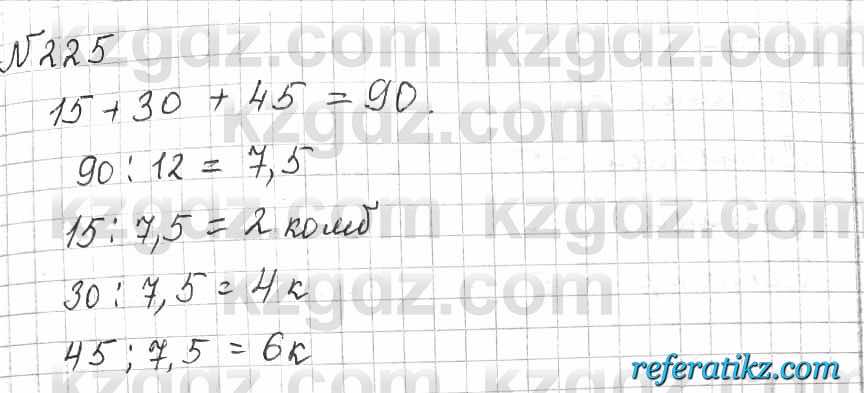 №225
15 + 30 + 45 = 90.
90 : 12 = 7,5
15 : 7,5 = 2 комб
30 : 7,5 = 4 к
45 ; 7,5 = 6к
kzgdz.com kzgdz.com
kzgdz.com
kzgdz.com kzgdz.com
kzgdz.com
kzgdz.com kzgdz.com
referatikz.com